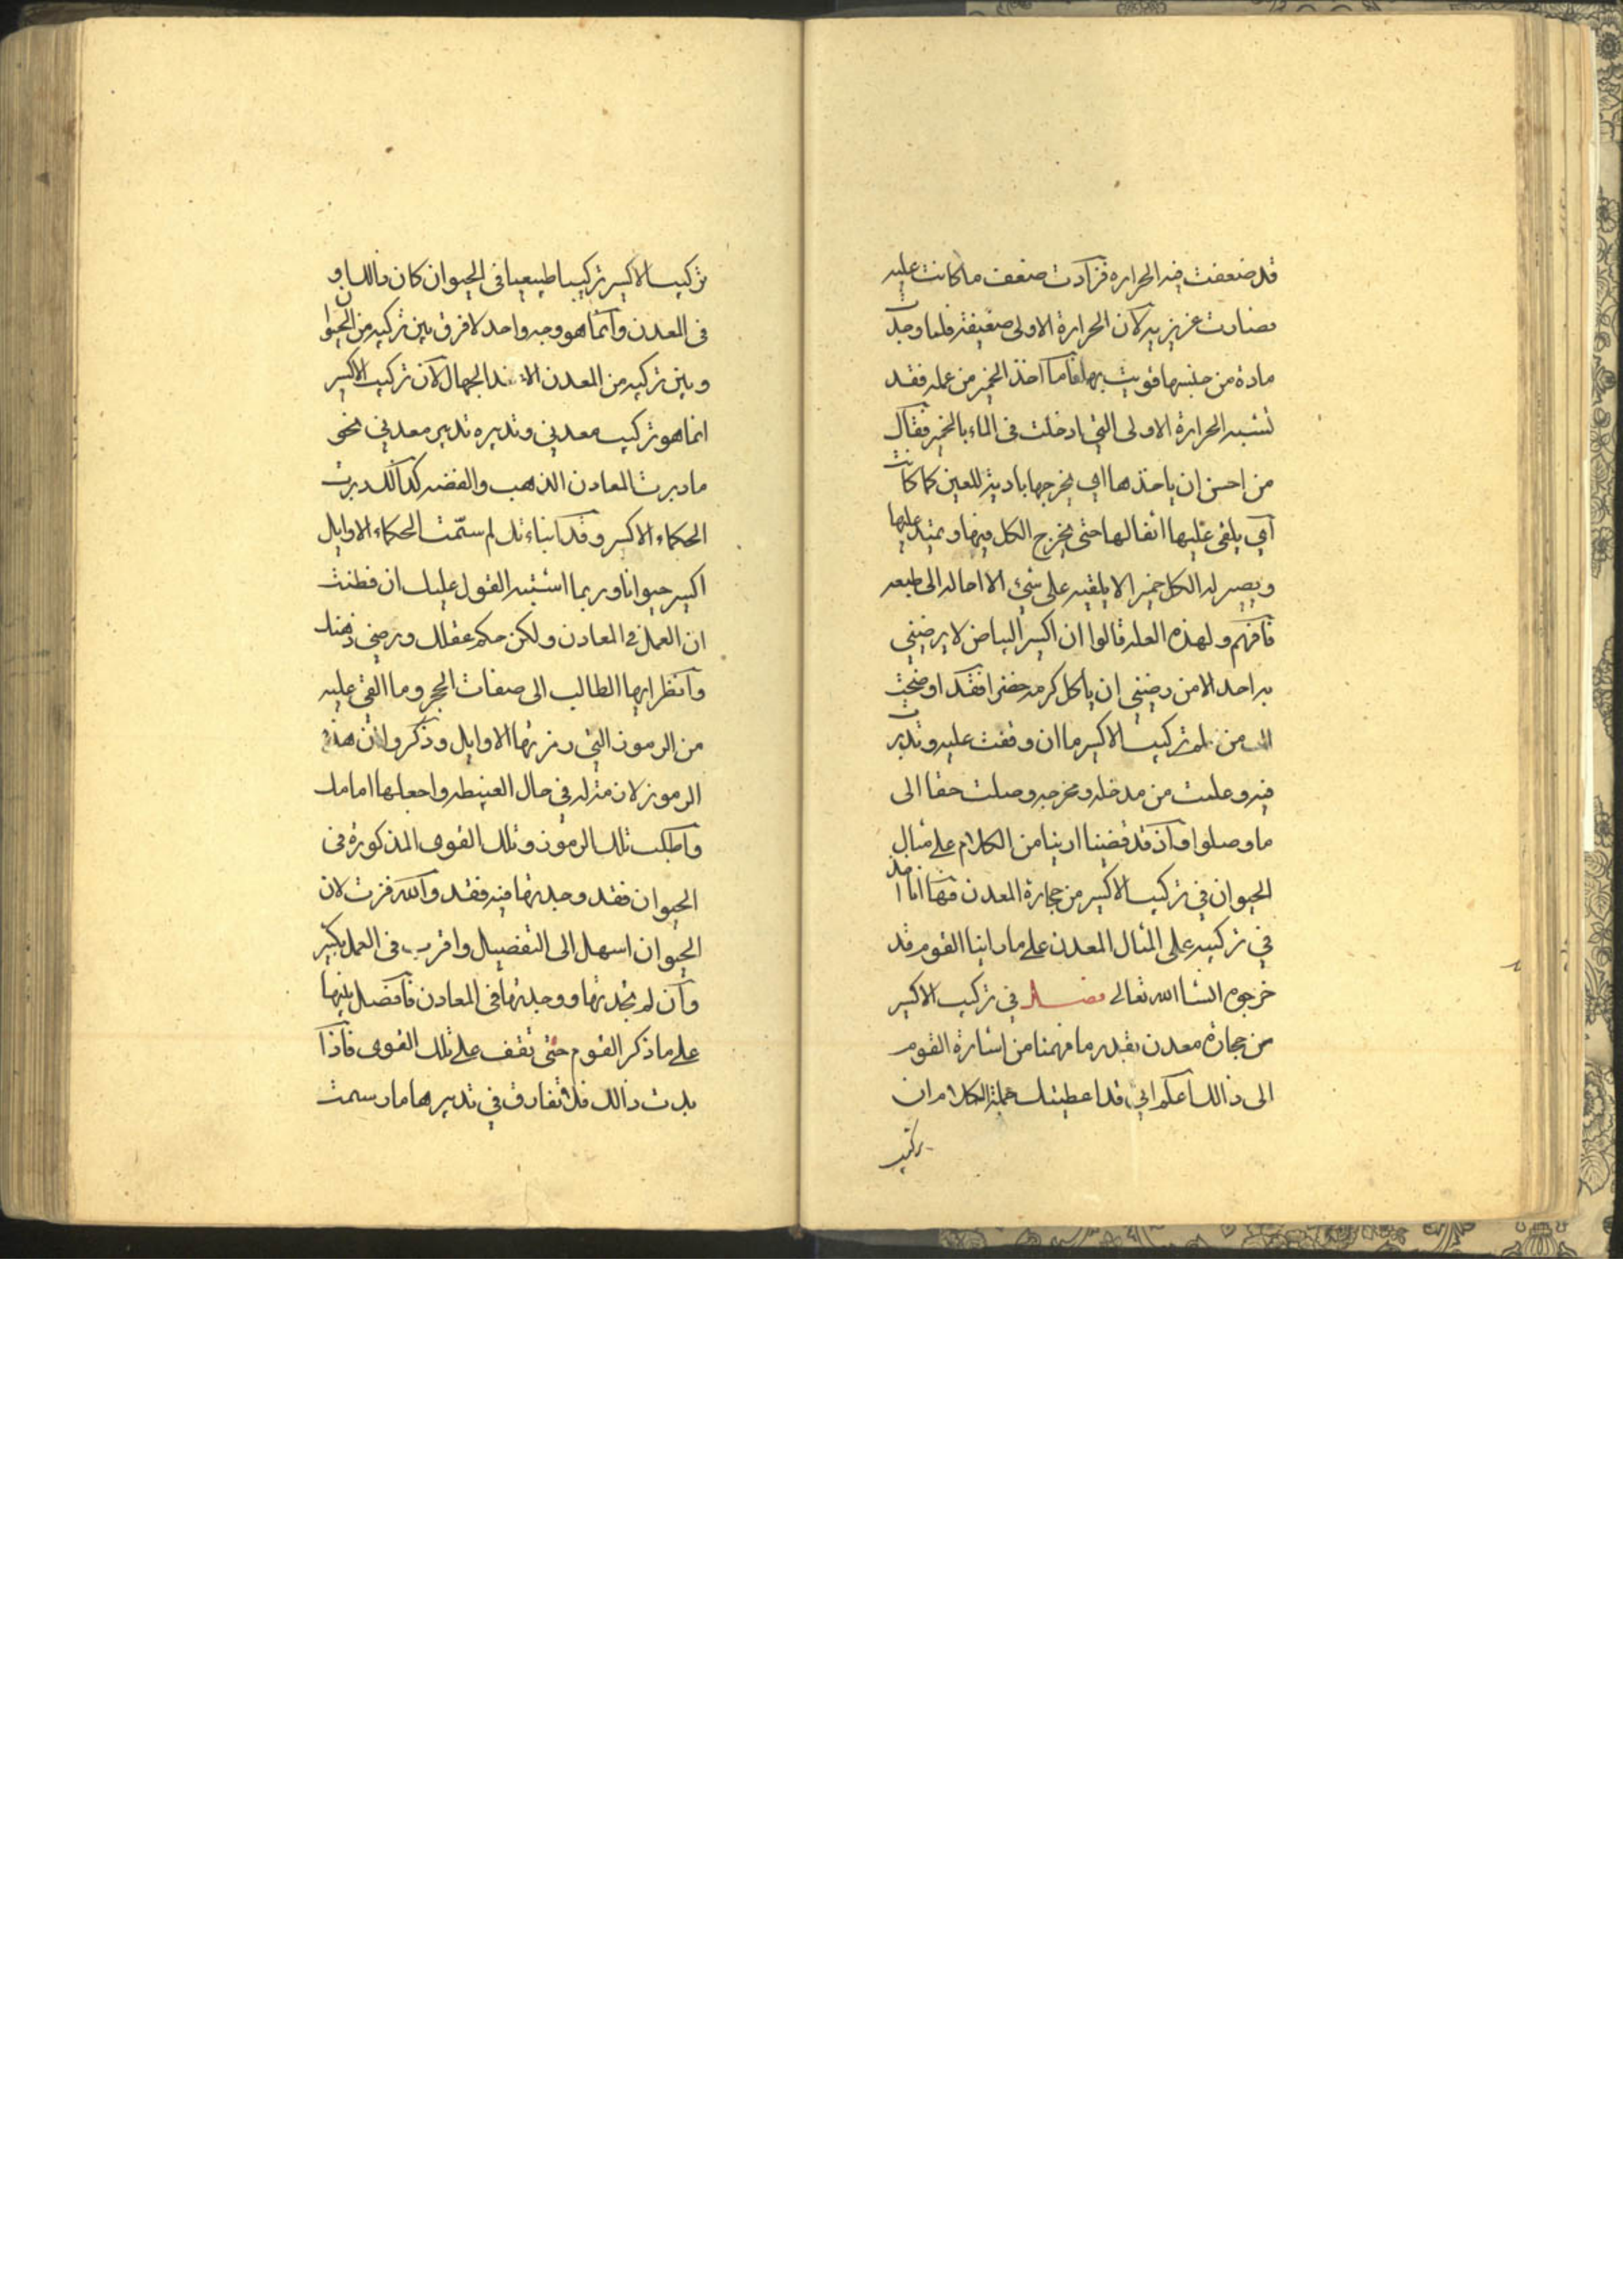 قد ضعفت فيه الحراره فزادت ضعف ما كانت عليه
فصارت غزيزيه لان الحرارة الاولى ضعيفة فلما وجدت
مادة من جنسها قويت بها فاما اخذ الخمير من عمله فقد
تشبه الحرارة الاولى التي ادخلت فى الماء بالخمير فقال
من احسن ان ياخذها اي يخرجها بادية للعين كما كانت
اي يلقى عليها اثفالها حتى يخرج الكل فيها ويمتد عليها
ويصير له الكل خميرا لا يلقيه على شئ الا احاله الى طبعه
فافهم ولهذه العله قالوا ان اكسير البياض لا يرضيني
به احد الا من رضيني ان ياكل كرمه حضرا فقد اوضحت
لك من علم تركيب الاكسير ما ان وقفت عليه وتدبرت
فيه وعلمت من مدخله ومخرجه وصلت حقا الى
ما وصلوا واذ قد قضينا اربنا من الكلام على مثال
الحيوان في تركيب الاكسير من حجارة المعدن فها انا اخذ
في تركيبه على المثال المعدن على ما راينا القوم قد
خرجوه انشا الله تعالى فصل في تركيب الاكسير
من حجارة معدن بقدر ما فهمنا من اشارة القوم
الى ذالك اعلم اني قد اعطيتك جملة الكلام ان
تركيب
تركيب الاكسير تركيبا طبيعيا فى الحيوان كان ذالك او
فى المعدن وانما هو وجه واحد لا فرق بين تركيبه من الحيوان
وبين تركيبه من المعدن الا عند الجهال لان تركيب الاكسير
انما هو تركيب معدني وتدبيره تدبير معدني نحو
ما دبرت المعادن الذهب والفضه كذالك دبرت
الحكماء الاكسير وقد انباءتك لم سمّت الحكماء الاوايل
اكسير حيوانا وربما اشتبه القول عليك ان فطنت
ان العمل في المعادن ولكن حكم عقلك ورضي ذهنك
وانظر ايها الطالب الى صفات الحجر وما القي عليه
من الرموز التي رمزتها الاوايل وذكروا ان هذه
الرموز لان منزله في حال العنيطه واجعلها امامك
واطلب تلك الرموز وتلك القوى المذكورة فى
الحيوان فقد وجدتها فيه فقد والله فزت لان
الحيوان اسهل الى التفصيل واقرب فى العمل بكثير
وان لم تجدتها ووجدتها فى المعادن فافضل بينها
على ما ذكر القوم حتى تقف على تلك القوى فاذا
بدت ذالك فلا تفارق في تدبيرها ما رسمت